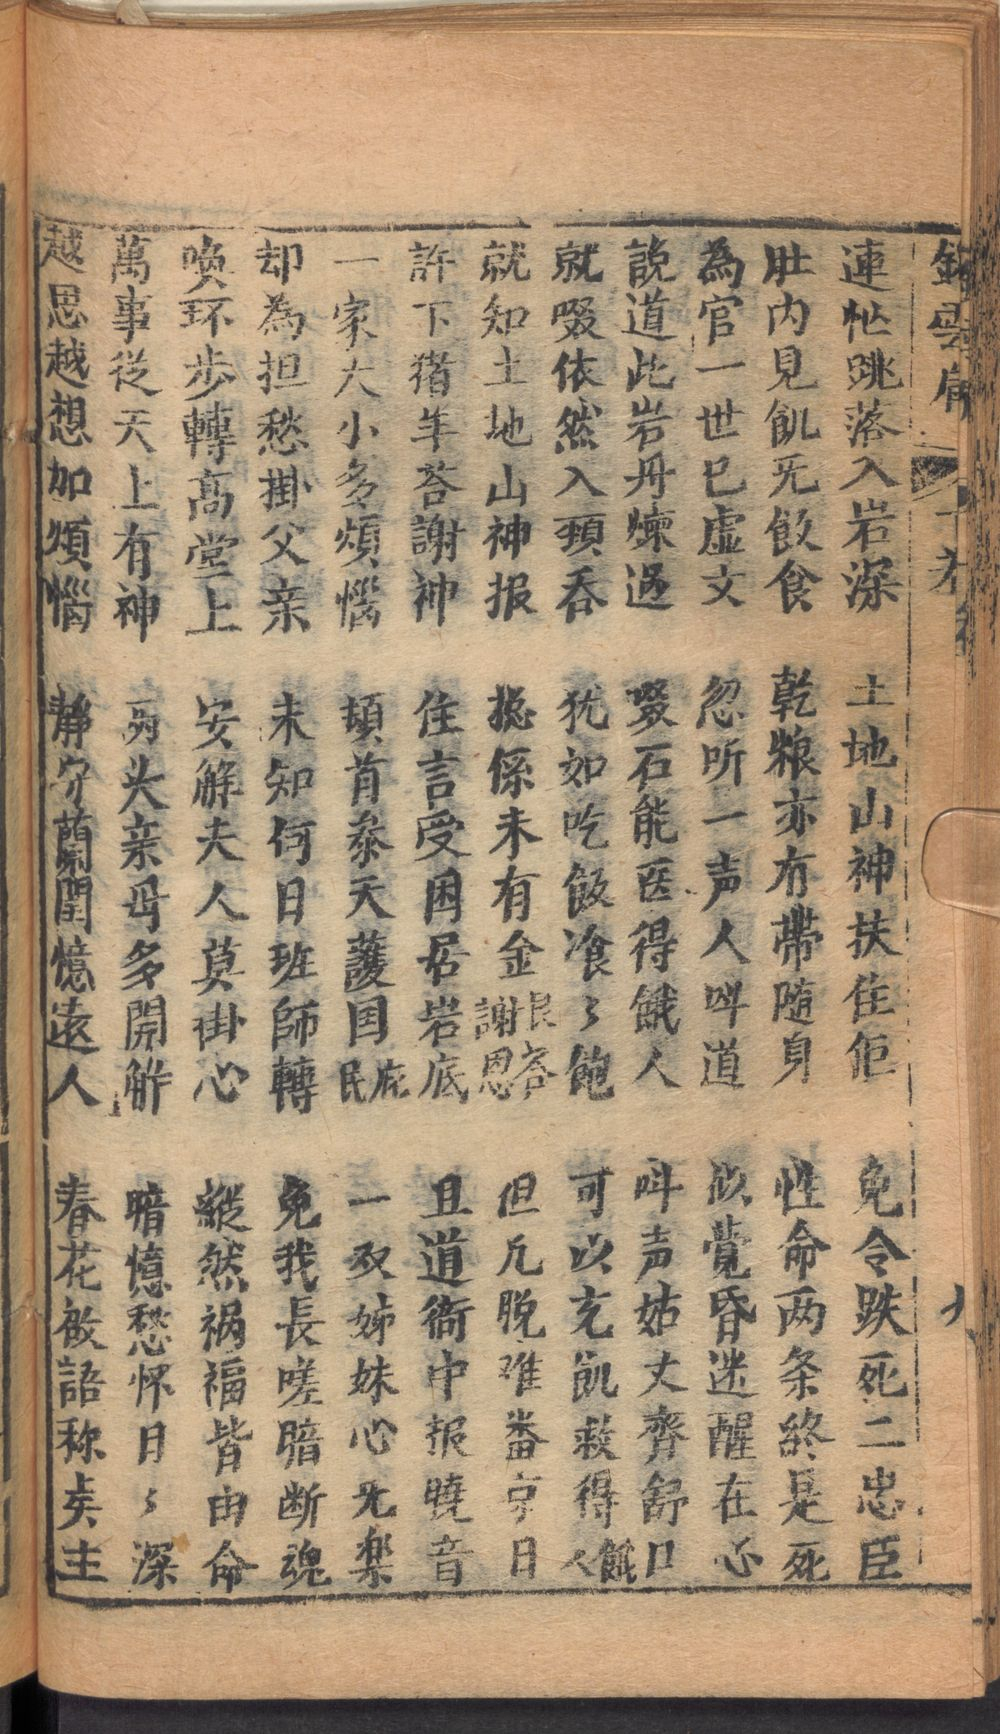 連忙跳落入岩深　土地山神扶住佢　免令跌死二忠臣
肚内見飢旡飯食　乾粮亦冇帶随身　性命两条終是死
為官一世已虚文　忽听一声人呌道　似覚昏迷醒在心
說道此岩丹煉過　啜石能医得餓人　呌声姑丈齊舒口
就啜依然入頸吞　犹如吃飯飡〻飽　可以充飢救得餓人
就知土地山神报　総係未有金民答謝恩　但凡脱难畨京日
許下猪羊荅謝神　住言受困居岩底　且道衙中报曉音
一家大小多煩惱　頓首叅天護国庇民　一双姊妹心旡楽
却為担愁掛父亲　未知何日班師轉　免我長嗟暗断魂
喚环步轉髙堂上　安觧夫人莫掛心　縱然祸福皆由命
萬事従天上有神　両头亲毋多開觧　暗憶愁怀日〻深
越思越想加煩惱　靜守蘭閨憶遠人　春花啟語称貞主
十卷
九